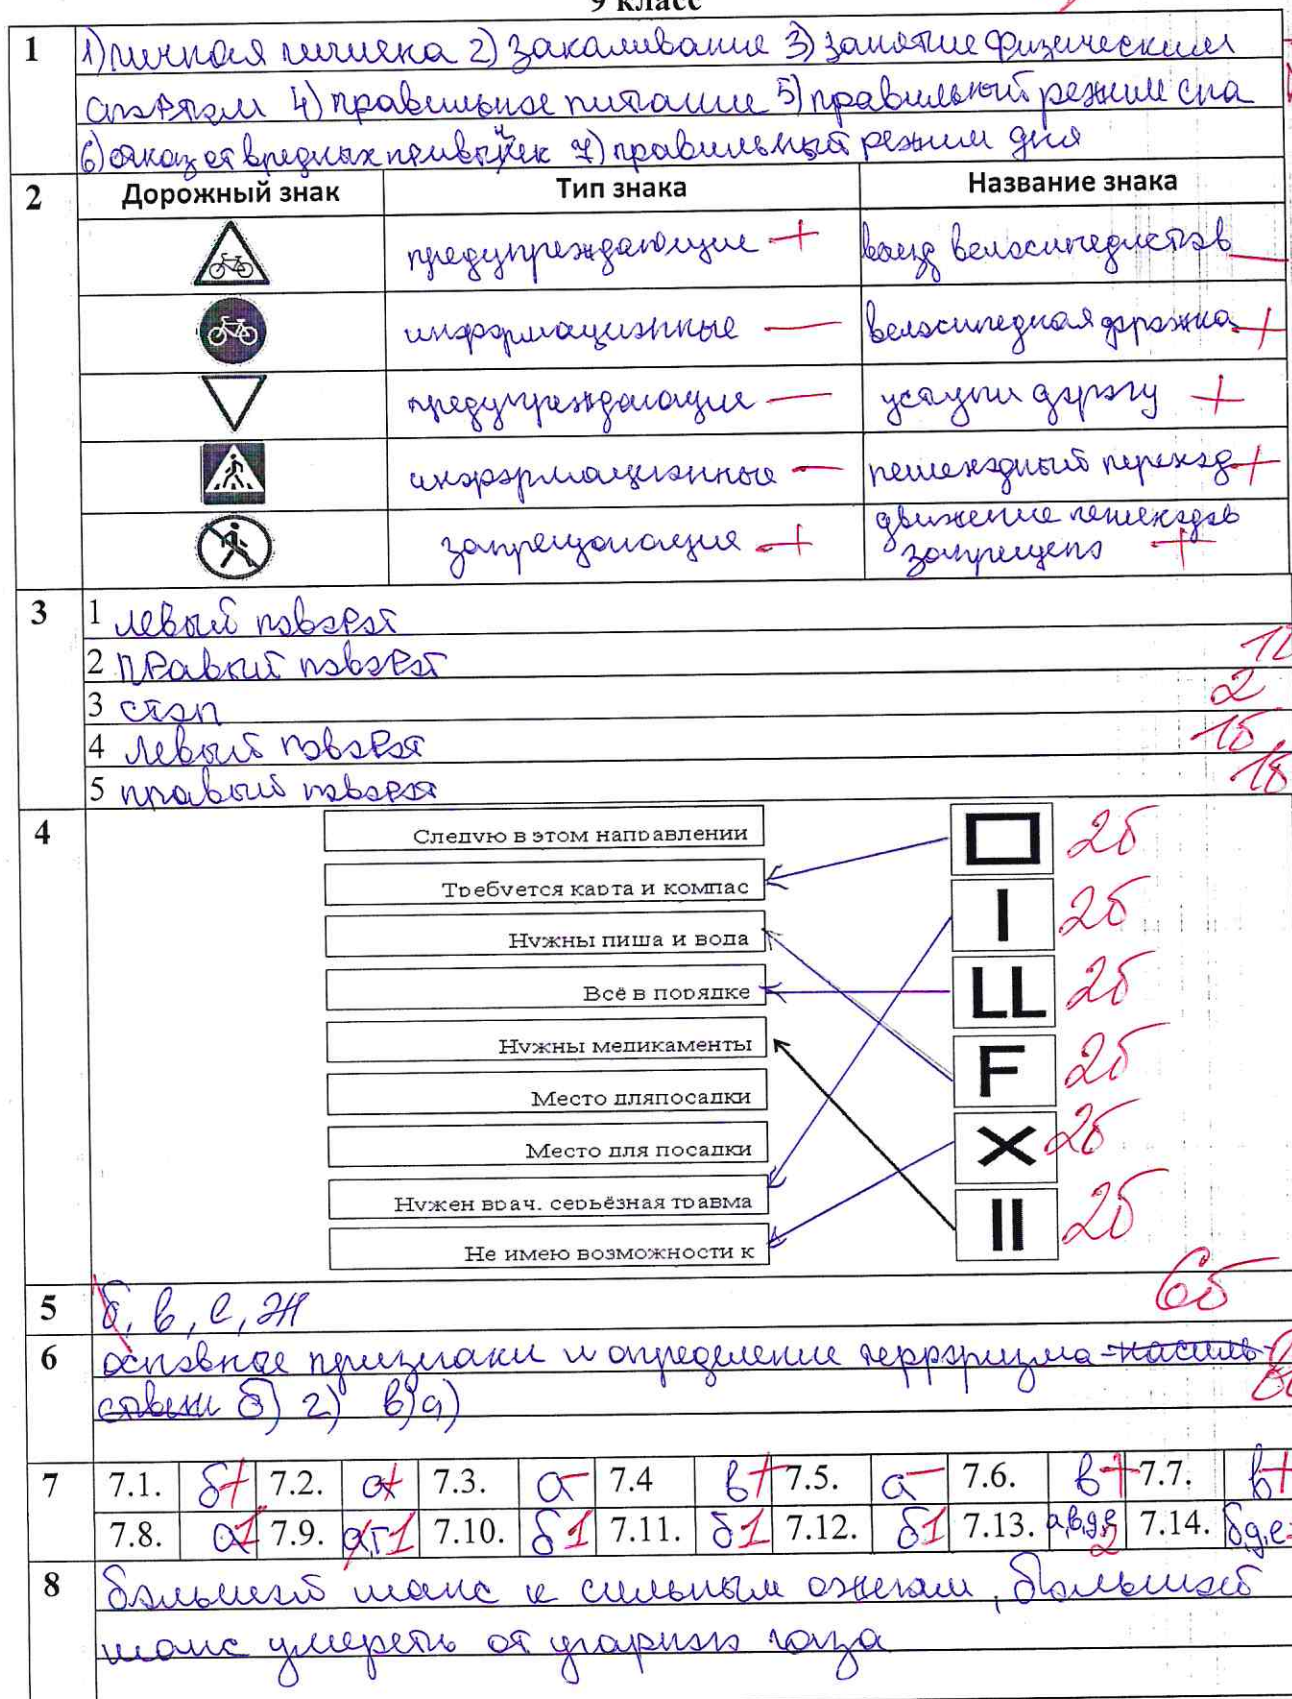 9 класс
1 1) личная гигиена 2) закаливание 3) занятие физическим
спортом 4) правильное питание 5) правильный режим сна
6) отказ от вредных привычек 7) правильный режим дня
2 Дорожный знак Тип знака Название знака
предупреждающие + въезд велосипедистов —
информационные — велосипедная дорожка +
предупреждающие — уступи дорогу +
информационные — пешеходный переход +
запрещающия + движение пешеходов
запрещено +
3 1 левый поворот
2 правый поворот
3 стоп 2
4 левый поворот 15
5 правый поворот 18
4 Следую в этом направлении 2б
Требуется карта и компас
Нужны пища и вода I 2б
Всё в порядке LL 2б
Нужны медикаменты F 2б
Место дляпосадки
Место для посадки X 2б
Нужен врач. серьёзная травма
Не имею возможности к II 2б
6б
5 б, в, е, ж
6 основные признаки и определение терроризма
б) г) в) а)
7 7.1. б+ 7.2. а+ 7.3. а– 7.4 в+ 7.5. а– 7.6. в+ 7.7. в+
7.8. а1 7.9. а,г1 7.10. б1 7.11. б1 7.12. б1 7.13. а,в,д,е 2 7.14. б,д,е
8 больший шанс к сильным ожегам, больший
шанс умереть от угарного газа